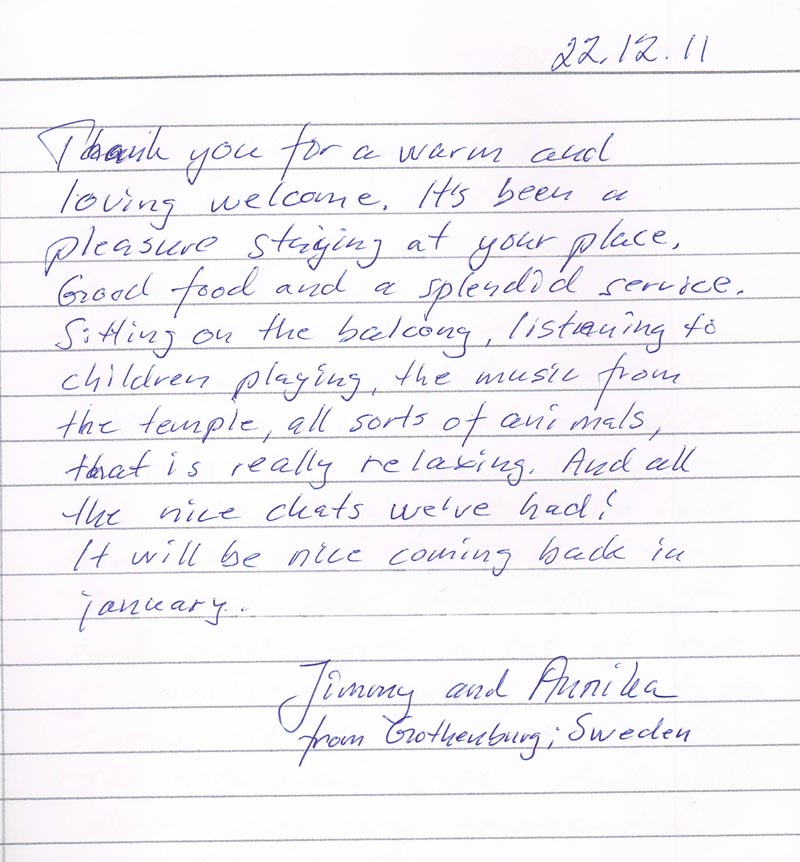 22.12.11
Thank you for a warm and
loving welcome. It's been a
pleasure staying at your place.
Good food and a splendid service.
Sitting on the balcony, listening to
children playing, the music from
the temple, all sorts of animals,
that is really relaxing. And all
the nice chats we've had!
It will be nice coming back in
january.
Jimmy and Annika
from Gothenburg, Sweden